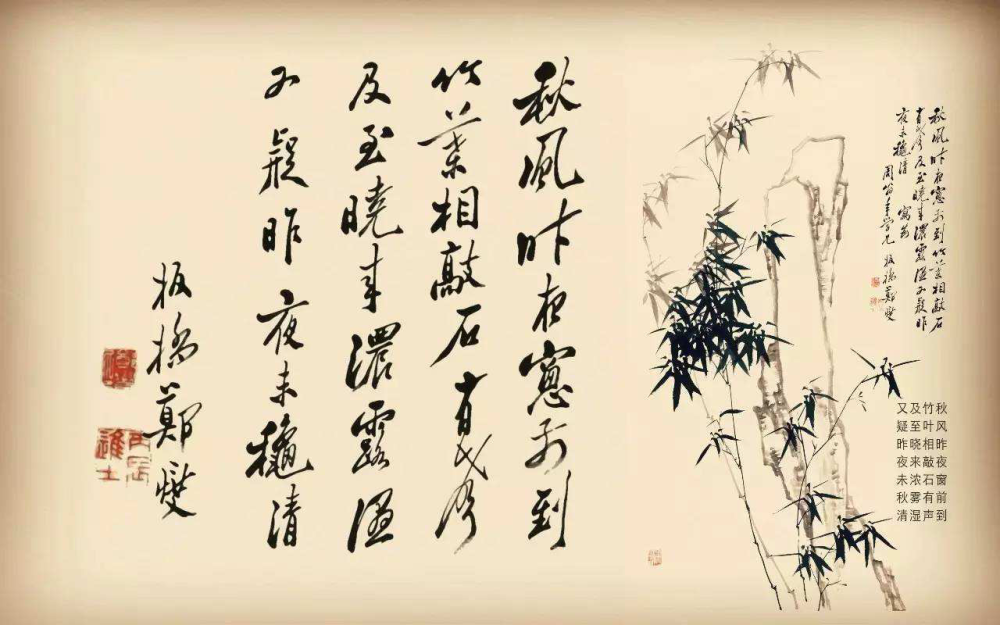 秋風昨夜窓前到
竹葉相敲石有聲
及至曉来濃露湿
又疑昨夜未龝清
板橋鄭燮
丙辰進士
秋風昨夜窓前到竹葉相敲石
有聲及至曉来濃露湿又疑昨
夜未龝清
板橋鄭燮
秋风昨夜窗前到
竹叶相敲石有声
及至晓来浓雾湿
又疑昨夜未秋清